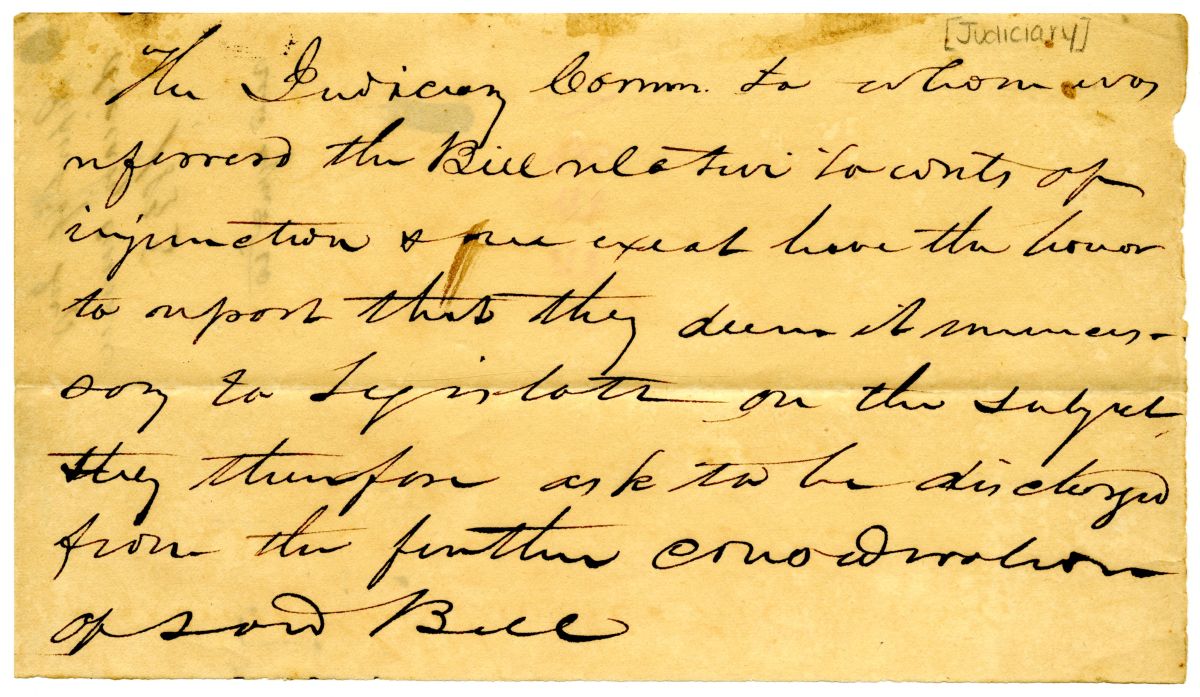 [Judiciary]
The Judiciary Comm. to whom was
referred the Bill relative to writs of
injunction & ne exeat have the honor
to report that they deem it unneces-
sary to Legislate on the subject,
they therefore ask to be discharged
from the further consideration
of said Bill